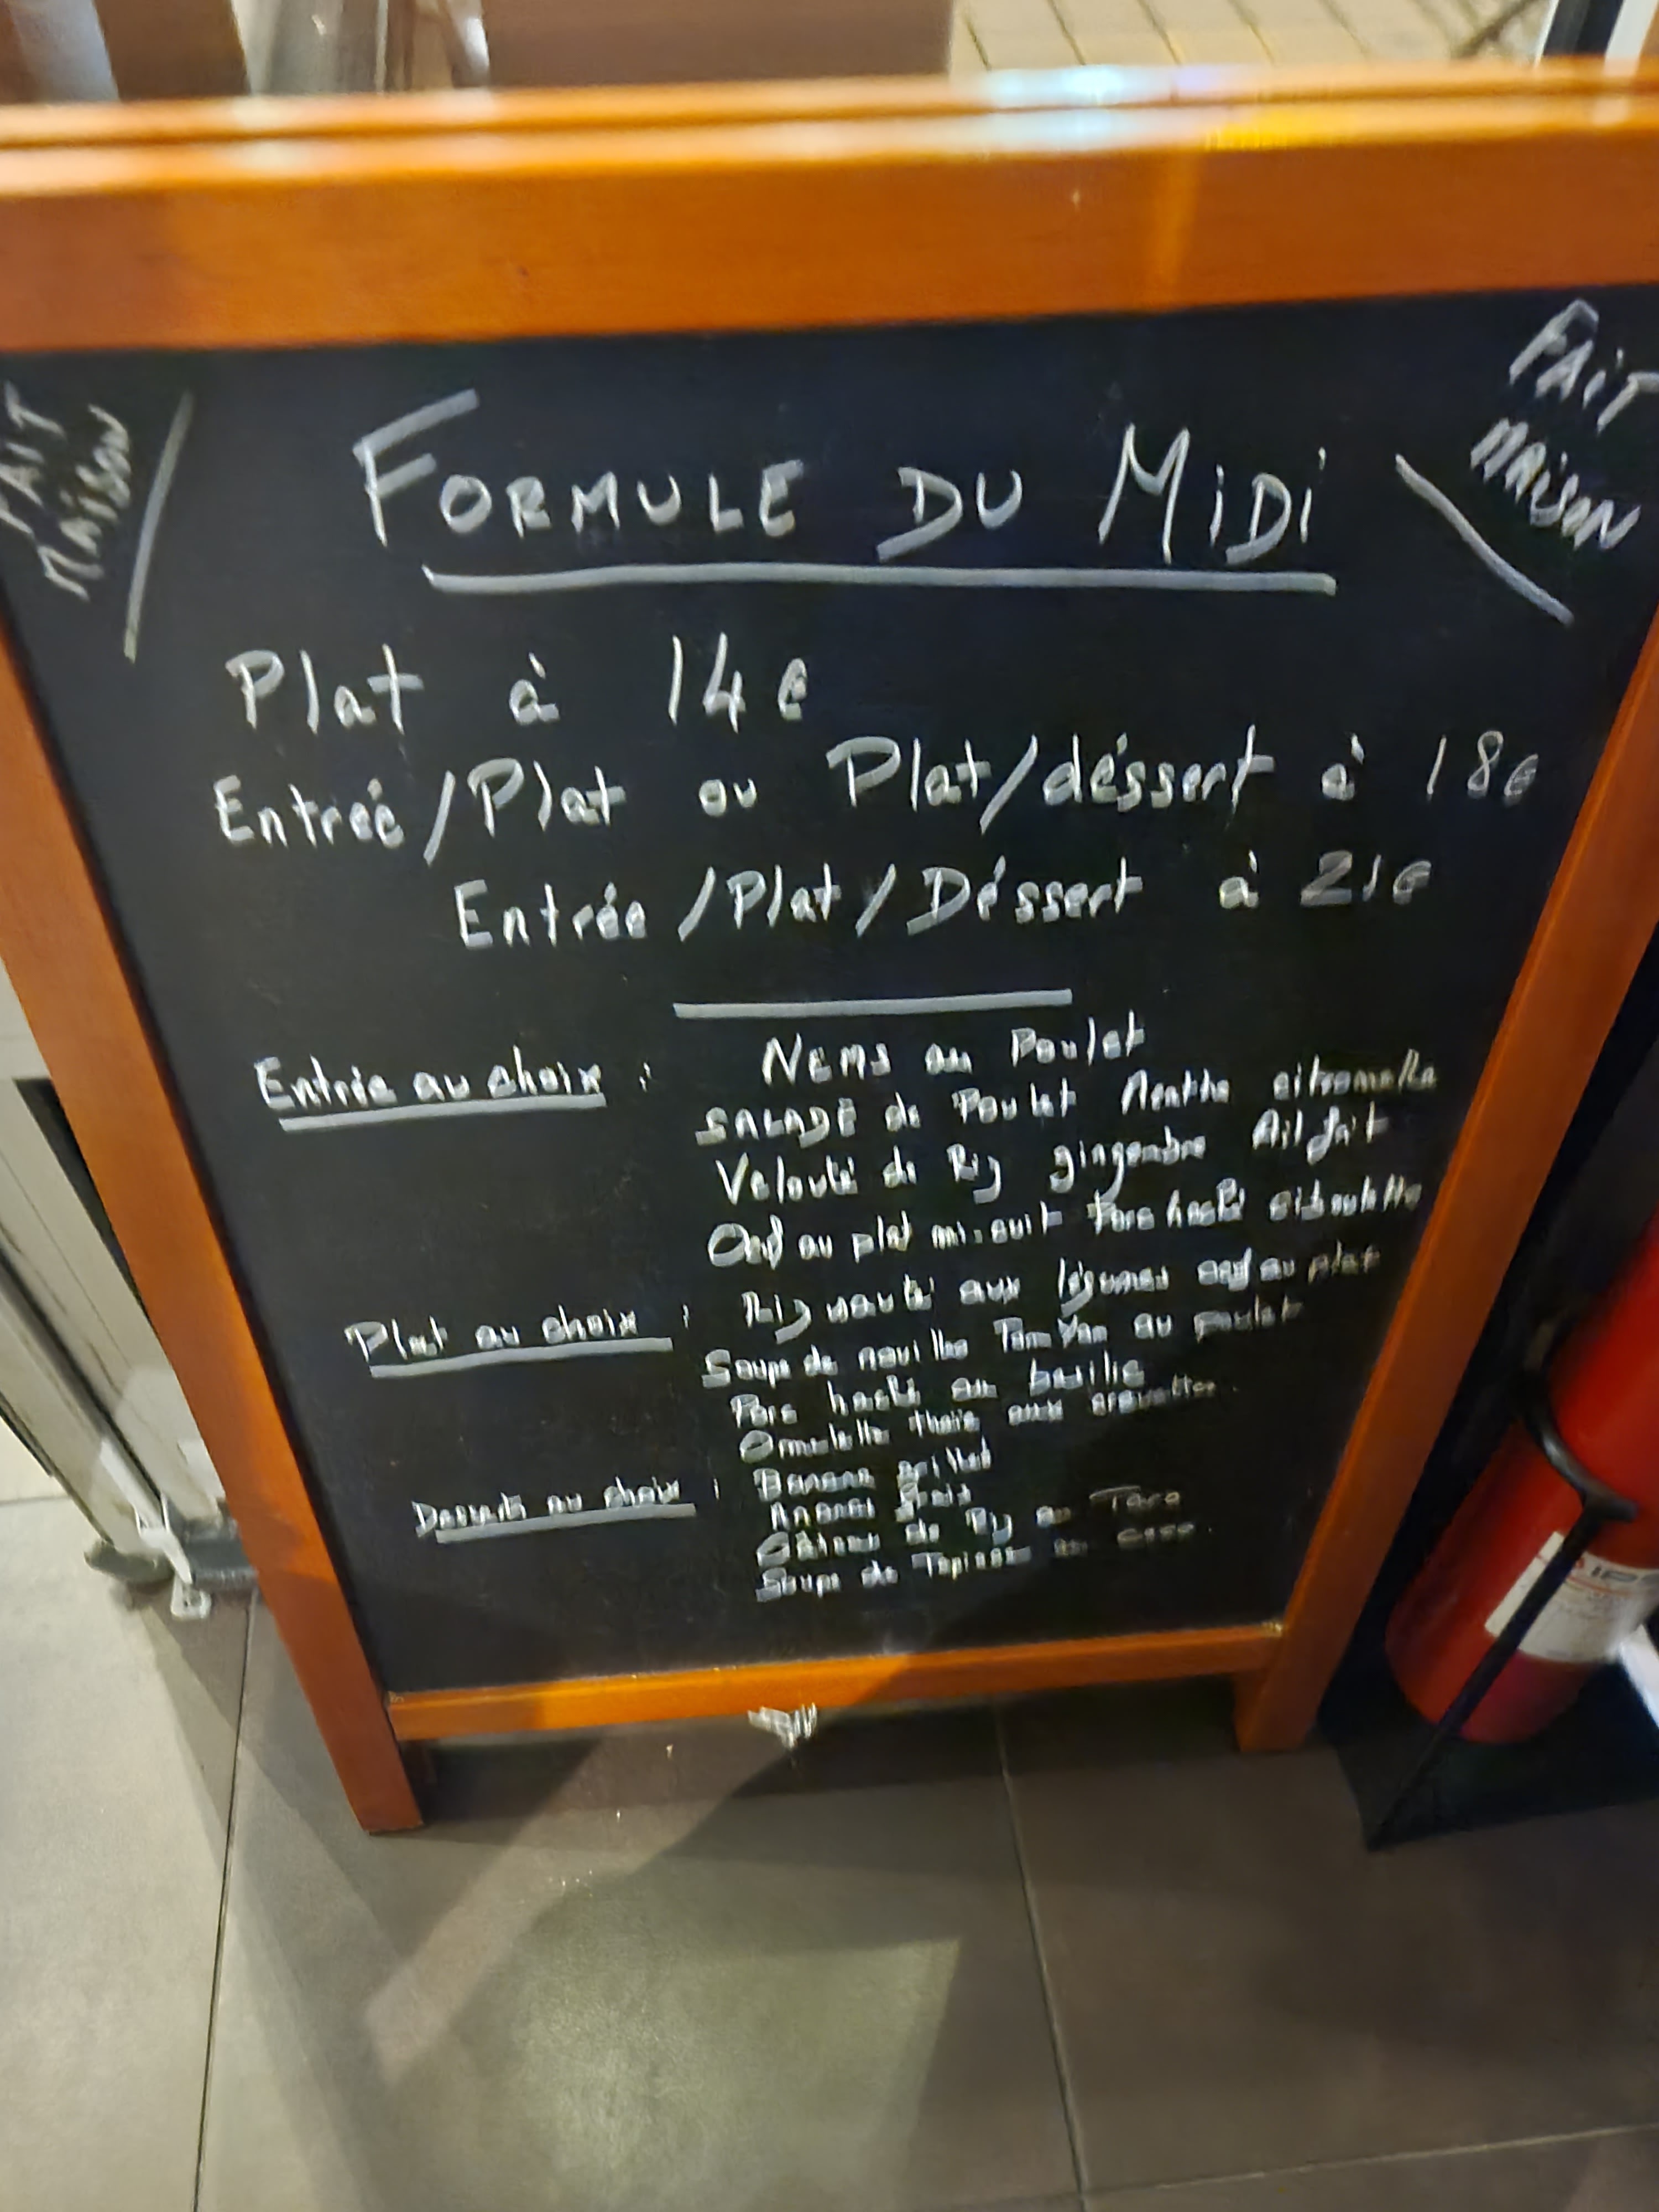 FAIT
MAISON
FAIT
MAISON
FORMULE DU MIDI
Plat à 14€
Entrée/Plat ou Plat/déssert à 18€
Entrée/Plat/Déssert à 21€
Entrée au choix : Nems au Poulet
SALADE de Poulet Menthe citronnelle
Velouté de Riz gingembre Ail frit
Oeuf au plat mi-cuit Porc haché ciboulette
Plat au choix : Riz sauté aux légumes oeuf au plat
Soupe de nouilles Tom Yam au poulet
Porc haché au basilic
Omelette thaïe aux crevettes
Dessert au choix : Banane grillé
Ananas frais
Gâteau de Riz au Taro
Soupe de Tapioca au coco